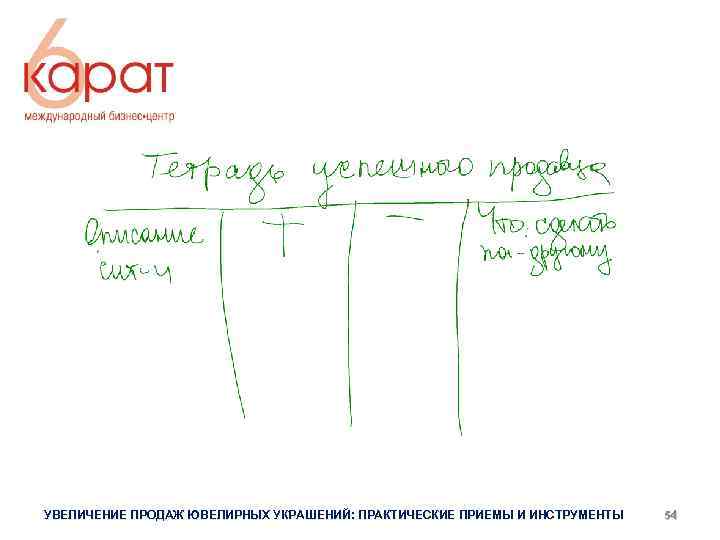 6 карат
международный бизнес•центр
Тетрадь успешного продавца
Описание + — Что сделать
сит-и по-другому
УВЕЛИЧЕНИЕ ПРОДАЖ ЮВЕЛИРНЫХ УКРАШЕНИЙ: ПРАКТИЧЕСКИЕ ПРИЕМЫ И ИНСТРУМЕНТЫ 54